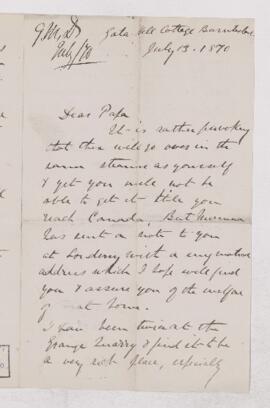 G.M.D.
July/70
Gala Hill Cottage
July 13. 1870
Dear Papa
It is rather provoking
that this will go over in the
same steamer as yourself
& yet you will not be
able to get it till you
reach Canada, But Mamma
has sent a note to you
at Londonderry with a
address which I hope will find
you & assure you of the welfare
of at home.
I have been twice at the
Grange Quarry & find it to be
a very rich place, especially